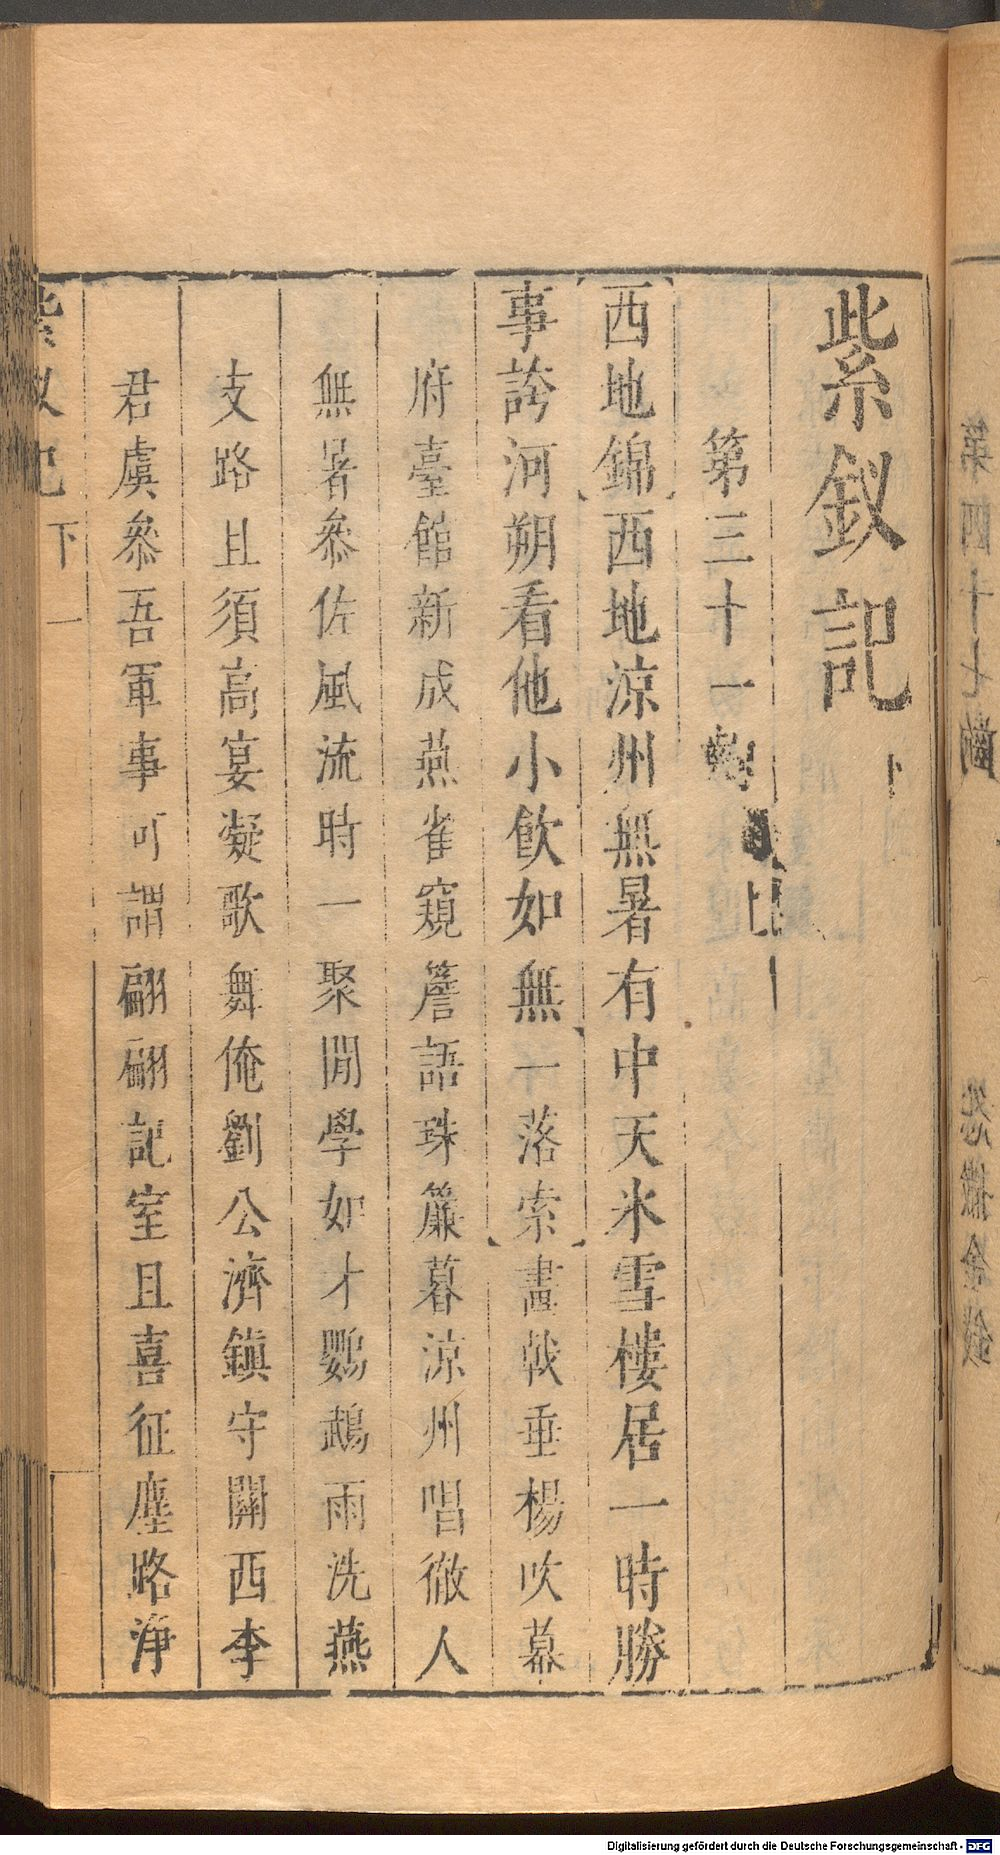 紫釵記
第三十一齣
西地錦西地涼州無暑有中天氷雪樓居一時勝
事誇河朔看他小飲如無一落索畫戟垂楊吹幕
府臺館新成燕雀窺簷語珠簾暮涼州唱徹人
無暑叅佐風流時一聚閒學如才鸚鵡雨洗燕
支路且須高宴凝歌舞俺劉公濟鎮守關西李
君虞叅吾軍事可謂翩翩記室且喜征塵路淨
紫釵記 下 一
第四十七齣 怨撒金錢
Digitalisierung gefördert durch die Deutsche Forschungsgemeinschaft - DFG